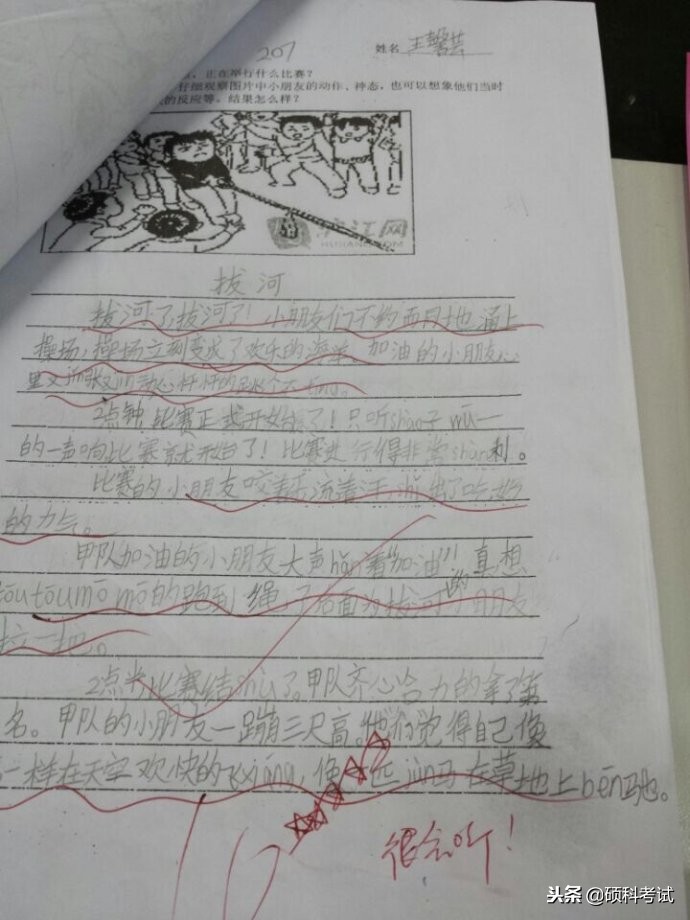 207 姓名 王馨芸
，正在举行什么比赛？
仔细观察图片中小朋友的动作、神态，也可以想象他们当时
的反应等。结果怎么样？
沪江网
HUJIANG.COM
拔河
拔河了，拔河了！小朋友们不约而同地涌上
操场，操场立刻变成了欢乐的海洋。加油的小朋友心
里又jǐn张又
2点钟，比赛正式开始了！只听shào子wū一
的一声响比赛就开始了！比赛进行得非常shùn利。
比赛的小朋友咬着牙流着汗，出了吃奶
的力气。
甲队加油的小朋友大声hǎn着“加油”！真想
tōutōumōmō的跑到绳子后面为拔河的小朋友
拉一把。
2点半比赛结shù了。甲队齐心合力的拿了第
名。甲队的小朋友一蹦三尺高。他们觉得自己像
一样在天空欢快的飞xiáng，像一匹jùn马在草地上bēn驰。
很会听！
头条 @硕科考试